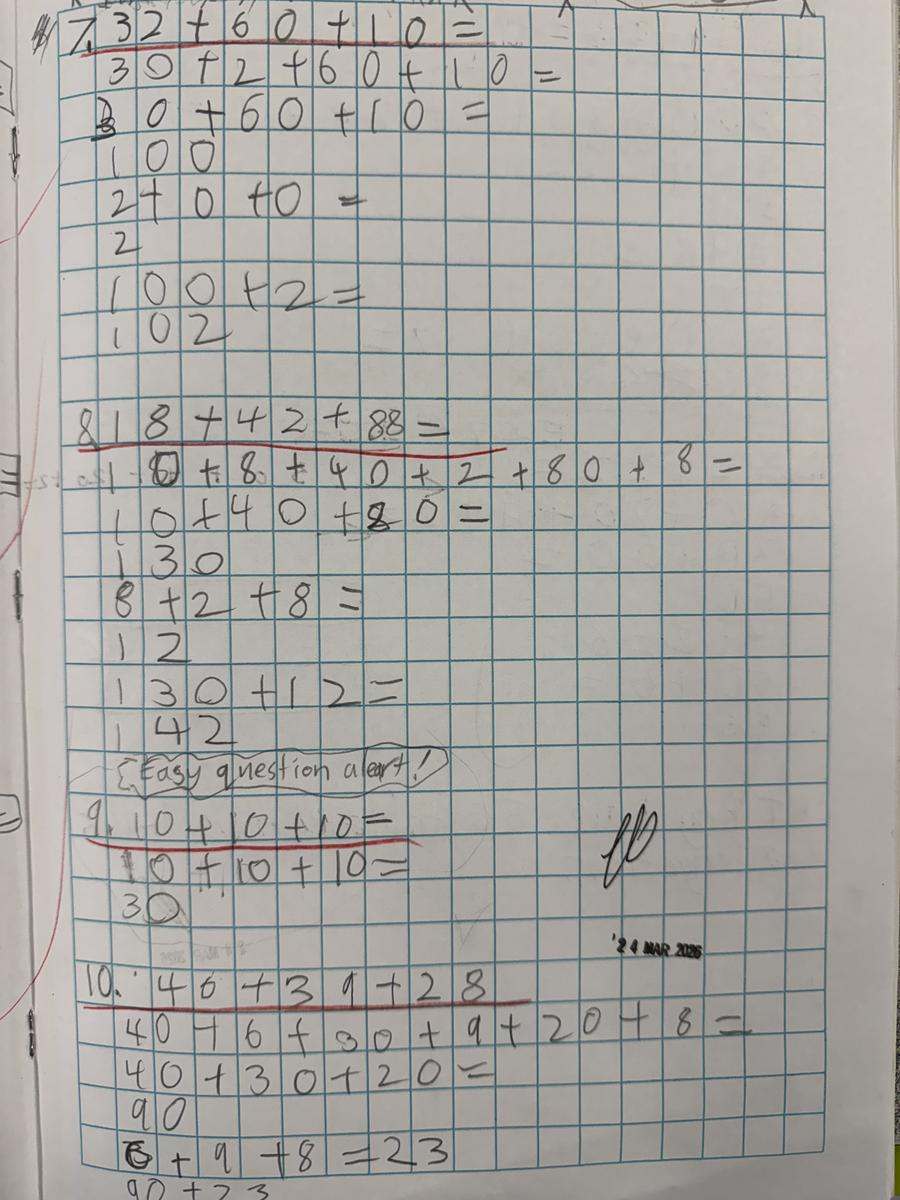 7. 32 + 60 + 10 =
30 + 2 + 60 + 10 =
30 + 60 + 10 =
100
2 + 0 + 0 =
2
100 + 2 =
102
8 18 + 42 + 88 =
10 + 8 + 40 + 2 + 80 + 8 =
10 + 40 + 80 =
130
8 + 2 + 8 =
12
130 + 12 =
142
Easy question alert!
9. 10 + 10 + 10 =
10 + 10 + 10 =
30
'24 MAR 2026
10. 46 + 39 + 28
40 + 6 + 30 + 9 + 20 + 8 =
40 + 30 + 20 =
90
6 + 9 + 8 = 23
90 + 23